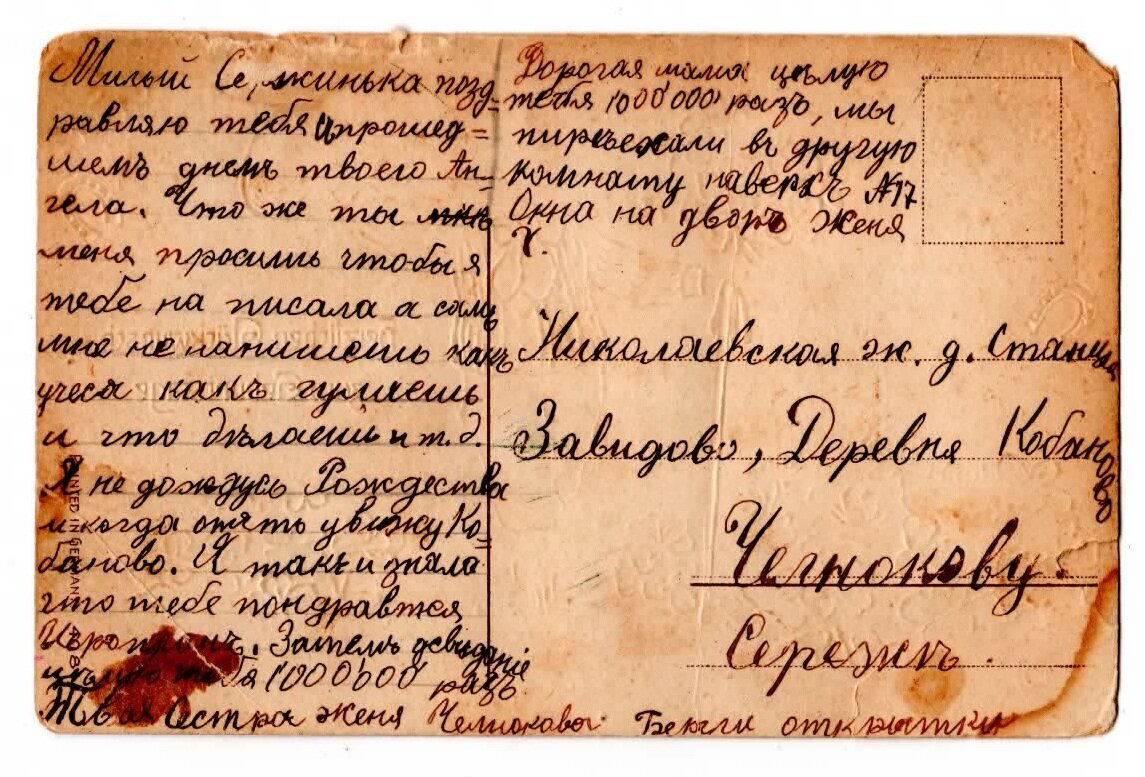 Милый Сержинька позд-
равляю тебя съ прошед=
шемъ днемъ твоего Ан-
гела. Что же ты
меня просишь чтобы я
тебе на писала а самъ
мне не напишешь какъ
учеся какъ гуляешь
и что дѣлаешь и т. д.
Я не дождусь Рождества
и когда опять увижу Ко=
баново. Я такъ и знала
что тебе пондравтся
Затемъ досвиданіе
цѣлую тебя 1000'000 разъ
Твоя Сестра женя Челнокова. Береги открытки
Дорогая мама цѣлую
тебя 1000'000 разъ, мы
пиреѣхали въ другую
комнату наверхъ №17
Окна на дворъ Женя
Ч.
Николаевская ж. д. Станція
Завидово, Деревня Кобаново
Челнокову.
Сережѣ.
PRINTED IN GERMANY